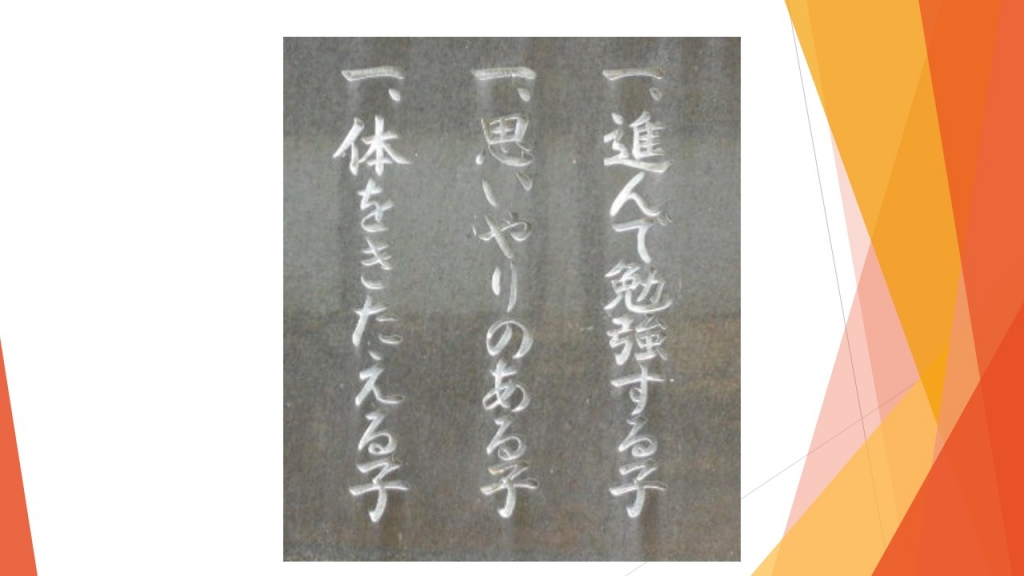 一、進んで勉強する子
一、思いやりのある子
一、体をきたえる子